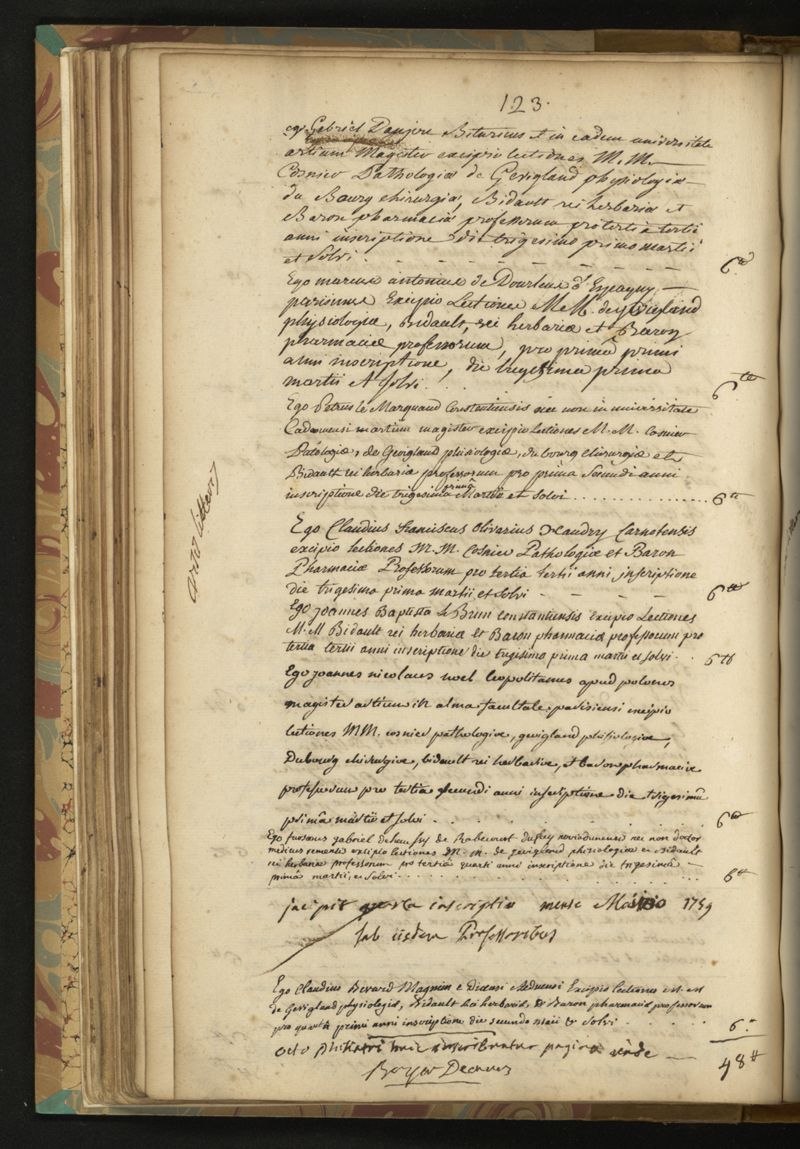 123.
ego Gabriel Danjou Bituricus et in eadem universitate
artium Magister excipio lectiones M.M.
Cosnier Pathologiæ de Gevigland physiologiæ
du Bourg chirurgiæ, Bidault rei herbariæ et
Baron pharmaciæ professorum pro tertia tertii
anni inscriptione die trigesimo primo martii
et solvi . 6tt
Ego marcus antonius de Dourlens d'
parisinus Excipio Lectiones M.M. de gevigland
physiologiæ, Bidault, rei herbariæ et Baron
pharmaciæ professorum, pro prima primi
anni inscriptione, die trigesima prima
martii et solvi . . . 6tt
Ego Petrus le Marquand Constantiensis nec non in universitate
Cadomensi artium magister excipio lectiones M.M. Cosnier
Patologiæ, de Gevigland phisiologiæ, du bourg chirurgiæ et
Bidault rei herbariæ professorum pro prima secundi anni
inscriptione die trigesima prima Martii et solvi . . . . . . . . . . 6tt
Ego Claudius Franciscus Olivarius Carnotensis
excipio lectiones M.M. Cosnier Pathologiæ et Baron
Pharmaciæ Professorum pro tertia tertii anni inscriptione
die trigesima prima martii et solvi - - - - 6tt
Ego joannes Baptista le Brun constantiensis Excipio Lectiones
M.M Bidault rei herbariæ et Baron pharmaciæ professorum pro
tertia tertii anni inscriptione die trigesima prima martii et solvi . . 6tt
Ego joannes nicolaus noel leopolitanus apud polonos
magister artium in alma facultate parisiensi excipio
lectiones MM. cosnier pathologiæ, gevigland phisiologiæ,
Dubourg chirurgiæ, bidault rei herbariæ, et baron pharmaciæ
professorum pro tertia secundi anni inscriptione die trigesima
prima martii et solvi . . . . . . 6tt
Ego gabriel de Rabecourt noviodunensis nec non doctor
medicus remensis excipio lectiones M.M. de gevigland, phisiologiæ et Bidault
rei herbariæ professorum pro tertia quarti anni inscriptione die trigesima
prima martii, et solvi . . . . . . 6tt
incipit quarta inscriptio mense Maio 1759
sub iisdem Professoribus
Ego Claudius Berard Magnin e Excipio lectiones M.M
de Gevigland physiologiæ, Bidault Rei herbariæ, & Baron pharmaciæ professorum
pro quarta primi anni inscriptione die secundo maii & solvi . . . . 6tt
octo hac inscribuntur pagina unde — 48tt
Boyer Decanus